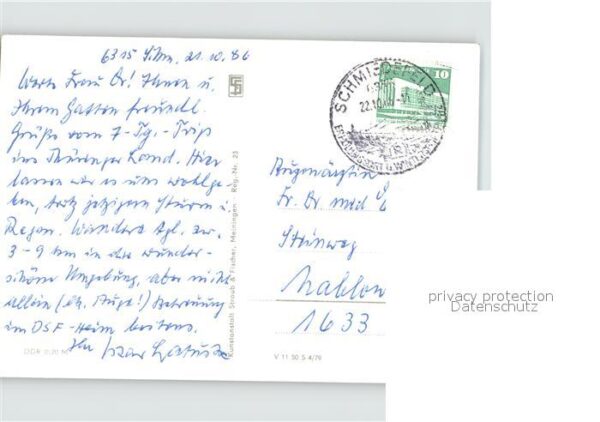 21.10.86
Werte Frau Dr! Ihnen u.
Ihrem Gatten freundl.
Grüße vom 7-Tg.-Trip
ins Thüringer Land. Hier
lassen wir es uns wohlge-
hen, trotz jetzigem Sturm u.
Regen. Wandern tgl. zw.
3-9 km in der wunder-
schönen Umgebung, aber nicht
allein Betreuung
im DSF-Heim bestens.
Ihr
DDR 0,20 M
Kunstanstalt Straub & Fischer, Meiningen Reg.-Nr. 23
V 11 50 S 4/79
SCHMIEDEFELD
22.10.86-11
10
Augenärztin
Fr. Dr. med
Steinweg
Nahlon
1633
privacy protection
Datenschutz